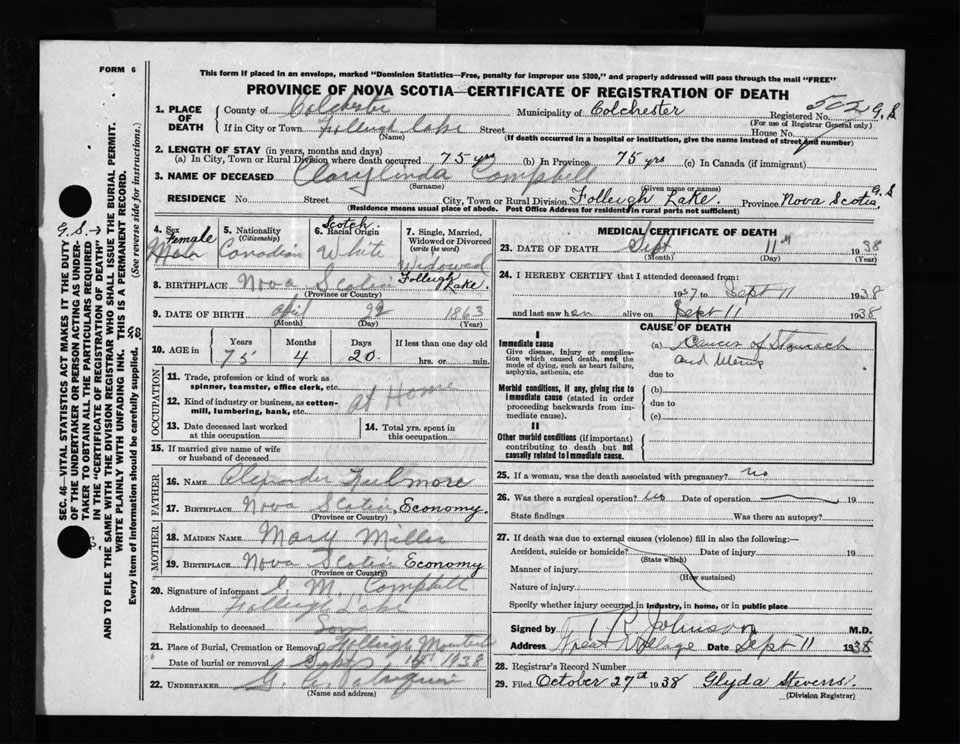 FORM 6
This form if placed in an envelope, marked "Dominion Statistics—Free, penalty for improper use $300," and properly addressed will pass through the mail "FREE"
PROVINCE OF NOVA SCOTIA—CERTIFICATE OF REGISTRATION OF DEATH
1. PLACE OF DEATH County of Colchester Municipality of Colchester Registered No. 502 G.S
(For use of Registrar General only)
If in City or Town Folleigh Lake Street House No.
(Name) (If death occurred in a hospital or institution, give the name instead of street and number)
2. LENGTH OF STAY (in years, months and days)
(a) In City, Town or Rural Division where death occurred 75 yrs (b) In Province 75 yrs (c) In Canada (if immigrant)
3. NAME OF DECEASED Campbell
(Surname) (Given name or names)
RESIDENCE No. Street City, Town or Rural Division Folleigh Lake. Province Nova Scotia G.S
(Residence means usual place of abode. Post Office Address for residents in rural parts not sufficient)
4. Sex Female Male
5. Nationality (Citizenship) Canadian
6. Racial Origin Scotch White
7. Single, Married, Widowed or Divorced (write the word) Widowed
8. BIRTHPLACE Nova Scotia Folleigh Lake.
(Province or Country)
9. DATE OF BIRTH April 22 1863
(Month) (Day) (Year)
10. AGE in Years Months Days If less than one day old
75 4 20 hrs. or min.
OCCUPATION
11. Trade, profession or kind of work as spinner, teamster, office clerk, etc. at Home
12. Kind of industry or business, as cotton-mill, lumbering, bank, etc.
13. Date deceased last worked at this occupation
14. Total yrs. spent in this occupation
15. If married give name of wife or husband of deceased
FATHER
16. NAME Alexander
17. BIRTHPLACE Nova Scotia, Economy.
(Province or Country)
MOTHER
18. MAIDEN NAME Mary Miller
19. BIRTHPLACE Nova Scotia Economy
(Province or Country)
20. Signature of informant M. Campbell
Address Folleigh Lake
Relationship to deceased Son
21. Place of Burial, Cremation or Removal Folleigh
Date of burial or removal Sept 14 1938
22. UNDERTAKER
(Name and address)
MEDICAL CERTIFICATE OF DEATH
23. DATE OF DEATH Sept 11th 1938
(Month) (Day) (Year)
24. I HEREBY CERTIFY that I attended deceased from:
1937 to Sept 11 1938
and last saw her alive on Sept 11 1938
CAUSE OF DEATH
I
Immediate cause
Give disease, injury or complication which caused death, not the mode of dying, such as heart failure, asphyxia, asthenia, etc
(a) Cancer of Stomach
and
due to
Morbid conditions, if any, giving rise to immediate cause (stated in order proceeding backwards from immediate cause).
(b)
due to
(c)
II
Other morbid conditions (if important) contributing to death but not causally related to immediate cause.
25. If a woman, was the death associated with pregnancy? no
26. Was there a surgical operation? no Date of operation 19
State findings Was there an autopsy?
27. If death was due to external causes (violence) fill in also the following:—
Accident, suicide or homicide? Date of injury 19
(State which)
Manner of injury
(How sustained)
Nature of injury
Specify whether injury occurred in industry, in home, or in public place
Signed by T R Johnson M.D.
Address Great Village Date Sept 11 1938
28. Registrar's Record Number
29. Filed October 27th 1938 Glyda Stevens
(Division Registrar)
G.S.→
SEC. 46—VITAL STATISTICS ACT MAKES IT THE DUTY
OF THE UNDERTAKER OR PERSON ACTING AS UNDER-
TAKER TO OBTAIN ALL THE PARTICULARS REQUIRED
IN THE "CERTIFICATE OF REGISTRATION OF DEATH"
AND TO FILE THE SAME WITH THE DIVISION REGISTRAR WHO SHALL ISSUE THE BURIAL PERMIT.
WRITE PLAINLY WITH UNFADING INK. THIS IS A PERMANENT RECORD.
Every item of information should be carefully supplied. (See reverse side for instructions.)